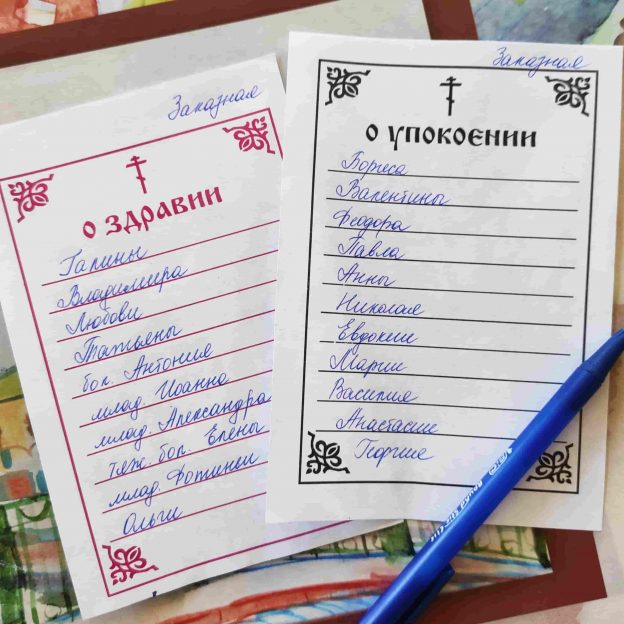 Заказная
о здравии
Галины
Владимира
Любови
Татьяны
бол. Антония
млад. Иоанна
млад. Александра
тяж. бол. Елены
млад. Фотинии
Ольги
Заказная
о упокоении
Бориса
Валентины
Феодора
Павла
Анны
Николая
Евдокии
Марии
Василия
Анастасии
Георгия